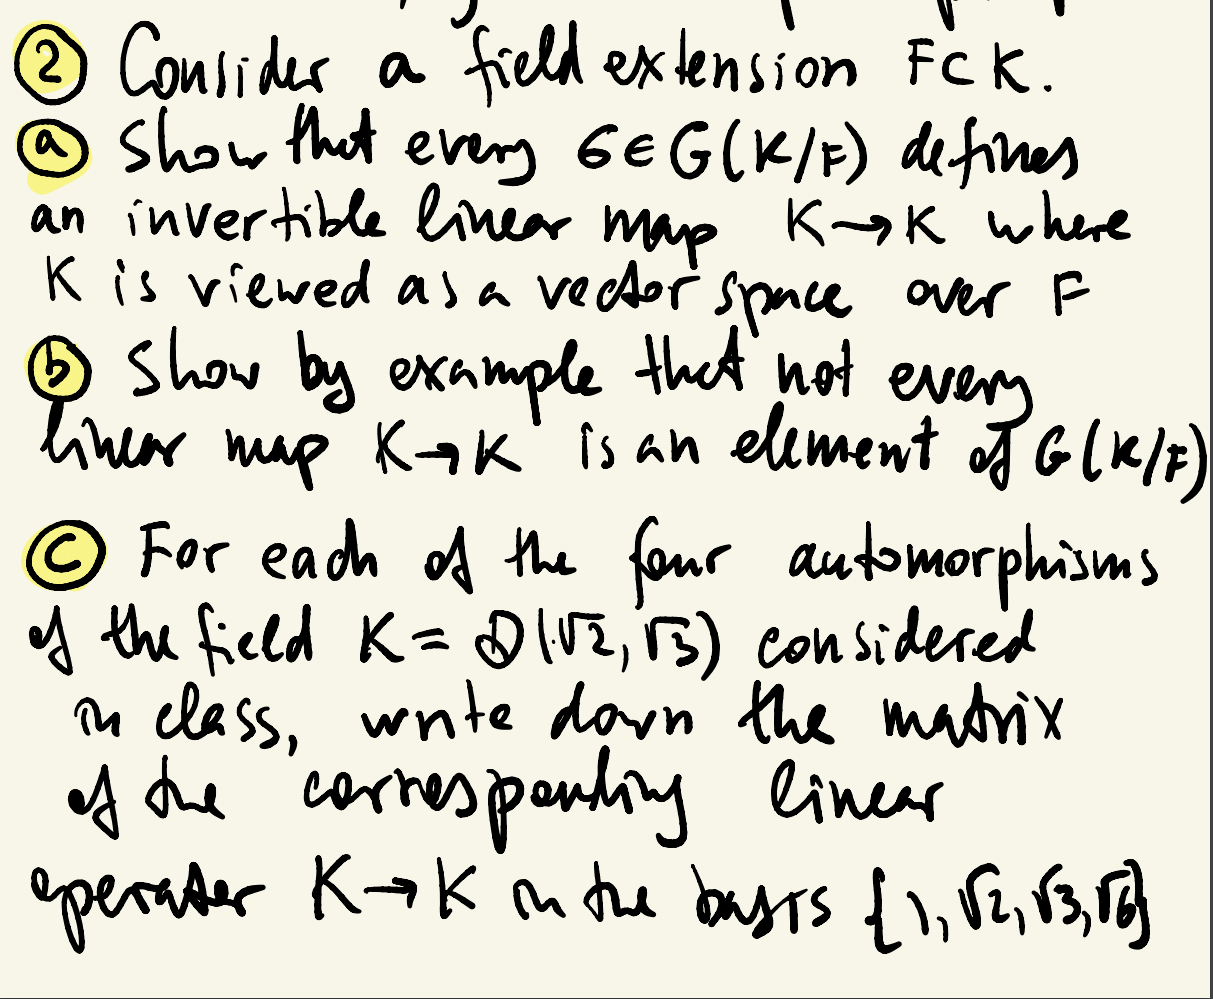 ② Consider a field extension F⊂K.
ⓐ Show that every σ∈G(K/F) defines
an invertible linear map K→K where
K is viewed as a vector space over F
ⓑ Show by example that not every
linear map K→K is an element of G(K/F)
ⓒ For each of the four automorphisms
of the field K=ℚ(√2,√3) considered
in class, write down the matrix
of the corresponding linear
operator K→K in the basis {1,√2,√3,√6}